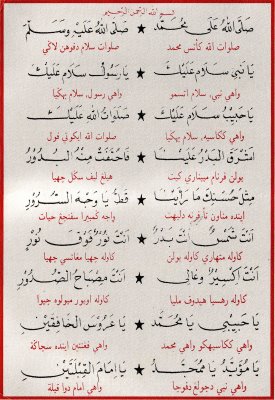 بسم الله الرحمن الرحيم
صَلَّى اللهُ عَلَى مُحَمَّدْ ★ صَلَّى اللهُ عَلَيْهِ وَسَلَّمْ
صلوات الله كأتس محمد صلوات سلام دفوهن لاڬي
يَا نَبِي سَلَامْ عَلَيْكَ ★ يَا رَسُولْ سَلَامْ عَلَيْكَ
واهي نبي, سلام اتسمو واهي رسول, سلام بهڬيا
يَا حَبِيبْ سَلَامْ عَلَيْكَ ★ صَلَوَاتُ اللهْ عَلَيْكَ
واهي ككاسيه, سلام بهڬيا صلوات الله
اَشْرَقَ الْبَدْرُ عَلَيْنَا ★ فَاخْتَفَتْ مِنْهُ الْبُدُوْرُ
بولن فرنام مپيناري كيت هيلڠ ليف سكل جهيا
مِثْلَ حُسْنِكَ مَا رَأَيْنَا ★ قَطُّ يَا وَجْهَ السُّرُوْرِ
اينده مناون تا فرنه دليهت واجه ڬمبيرا سفنجڠ حيات
اَنْتَ شَمْسٌ اَنْتَ بَدْرٌ ★ اَنْتَ نُوْرٌ فَوْقَ نُوْرٍ
كاوله متهاري كاوله بولن كاوله جهيا مڠاتسي جهيا
اَنْتَ اِكْسِيْرٌ وَغَالِي ★ اَنْتَ مِصْبَاحُ الصُّدُوْرِ
كاوله رهسيا هيدوف مليا كاوله اوبور
يَا حَبِيْبِي يَا مُحَمَّدْ ★ يَا عَرُوْسَ الْخَافِقَيْنِ
واهي ككاسيهكو واهي محمد واهي فڠنتين اينده سجاڬة
يَا مُؤَيَّدْ يَا مُمَجَّدْ ★ يَا اِمَامَ الْقِبْلَتَيْنِ
واهي نبي دجولڠ دفوجا واهي امام دوا قبلة